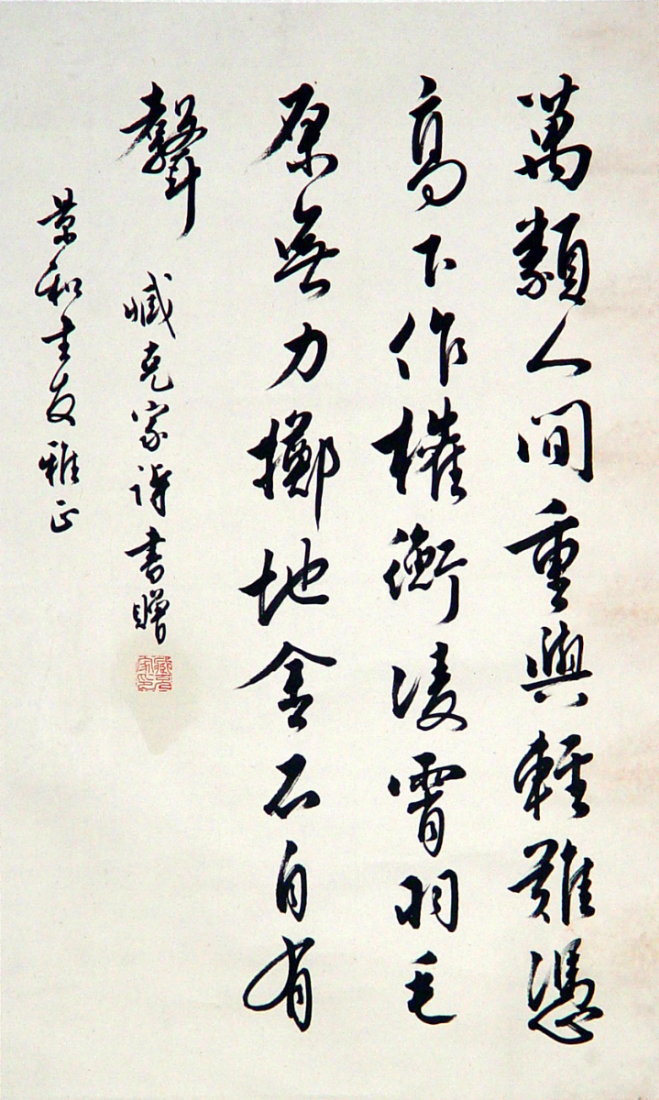 萬類人间重與輕難憑
高下作權衡凌霄羽毛
原無力擲地金石自有
聲
臧克家詩書贈
景和生友雅正